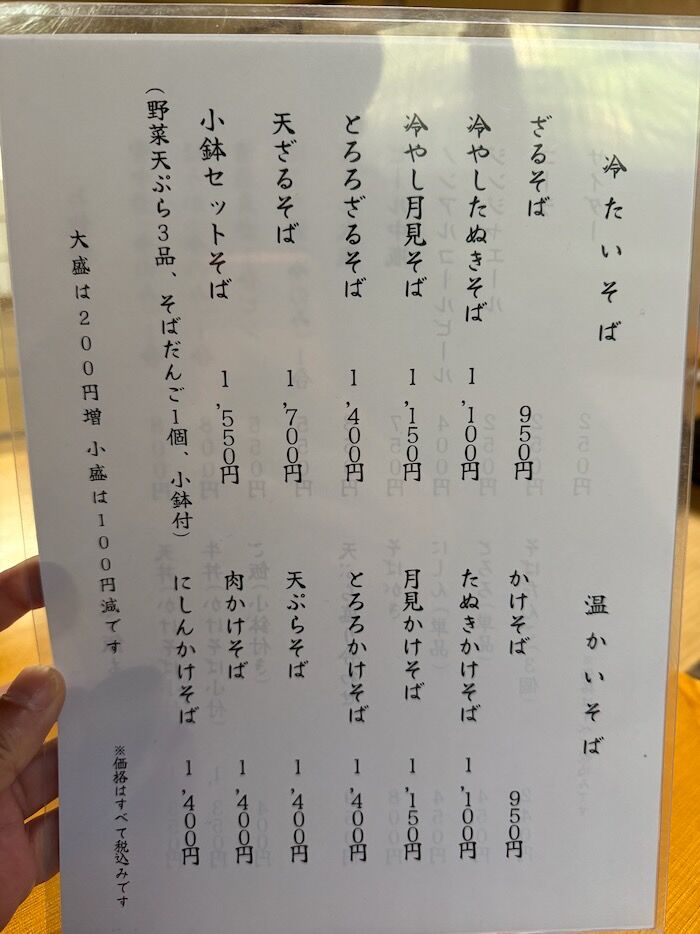 冷たいそば
ざるそば 950円
冷やしたぬきそば 1,100円
冷やし月見そば 1,150円
とろろざるそば 1,400円
天ざるそば 1,700円
小鉢セットそば 1,550円
(野菜天ぷら3品、そばだんご1個、小鉢付)
温かいそば
かけそば 950円
たぬきかけそば 1,100円
月見かけそば 1,150円
とろろかけそば 1,400円
天ぷらそば 1,400円
肉かけそば 1,400円
にしんかけそば 1,400円
大盛は200円増 小盛は100円減です
※価格はすべて税込みです